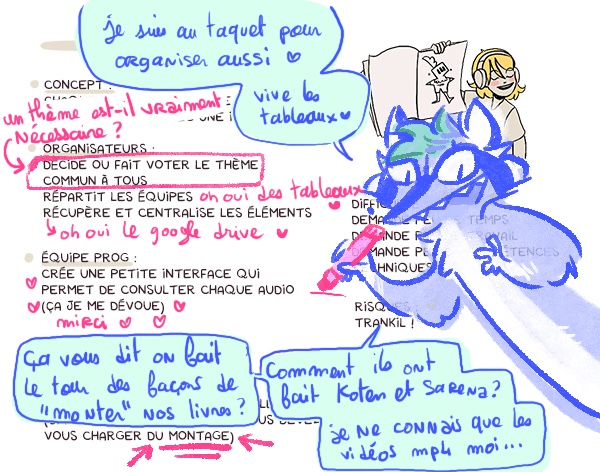 je suis au taquet pour
organiser aussi ♥
vive les
tableaux ♥
CONCEPT :
un thème est-il vraiment
Nécessaire ?
ORGANISATEURS :
DÉCIDE OU FAIT VOTER LE THÈME
COMMUN À TOUS
RÉPARTIT LES ÉQUIPES oh oui des tableaux ♥
RÉCUPÈRE ET CENTRALISE LES ÉLÉMENTS
oh oui le google drive ♥
ÉQUIPE PROG :
CRÉE UNE PETITE INTERFACE QUI
PERMET DE CONSULTER CHAQUE AUDIO
(ÇA JE ME DÉVOUE)
merci ♥ ♥
TEMPS
RISQUES :
TRANKIL !
Ça vous dit on fait
le tour des façons de
"monter" nos livres ?
Comment ils ont
fait Koten et Sarena ?
je ne connais que les
vidéos mp4 moi...
VOUS CHARGER DU MONTAGE)